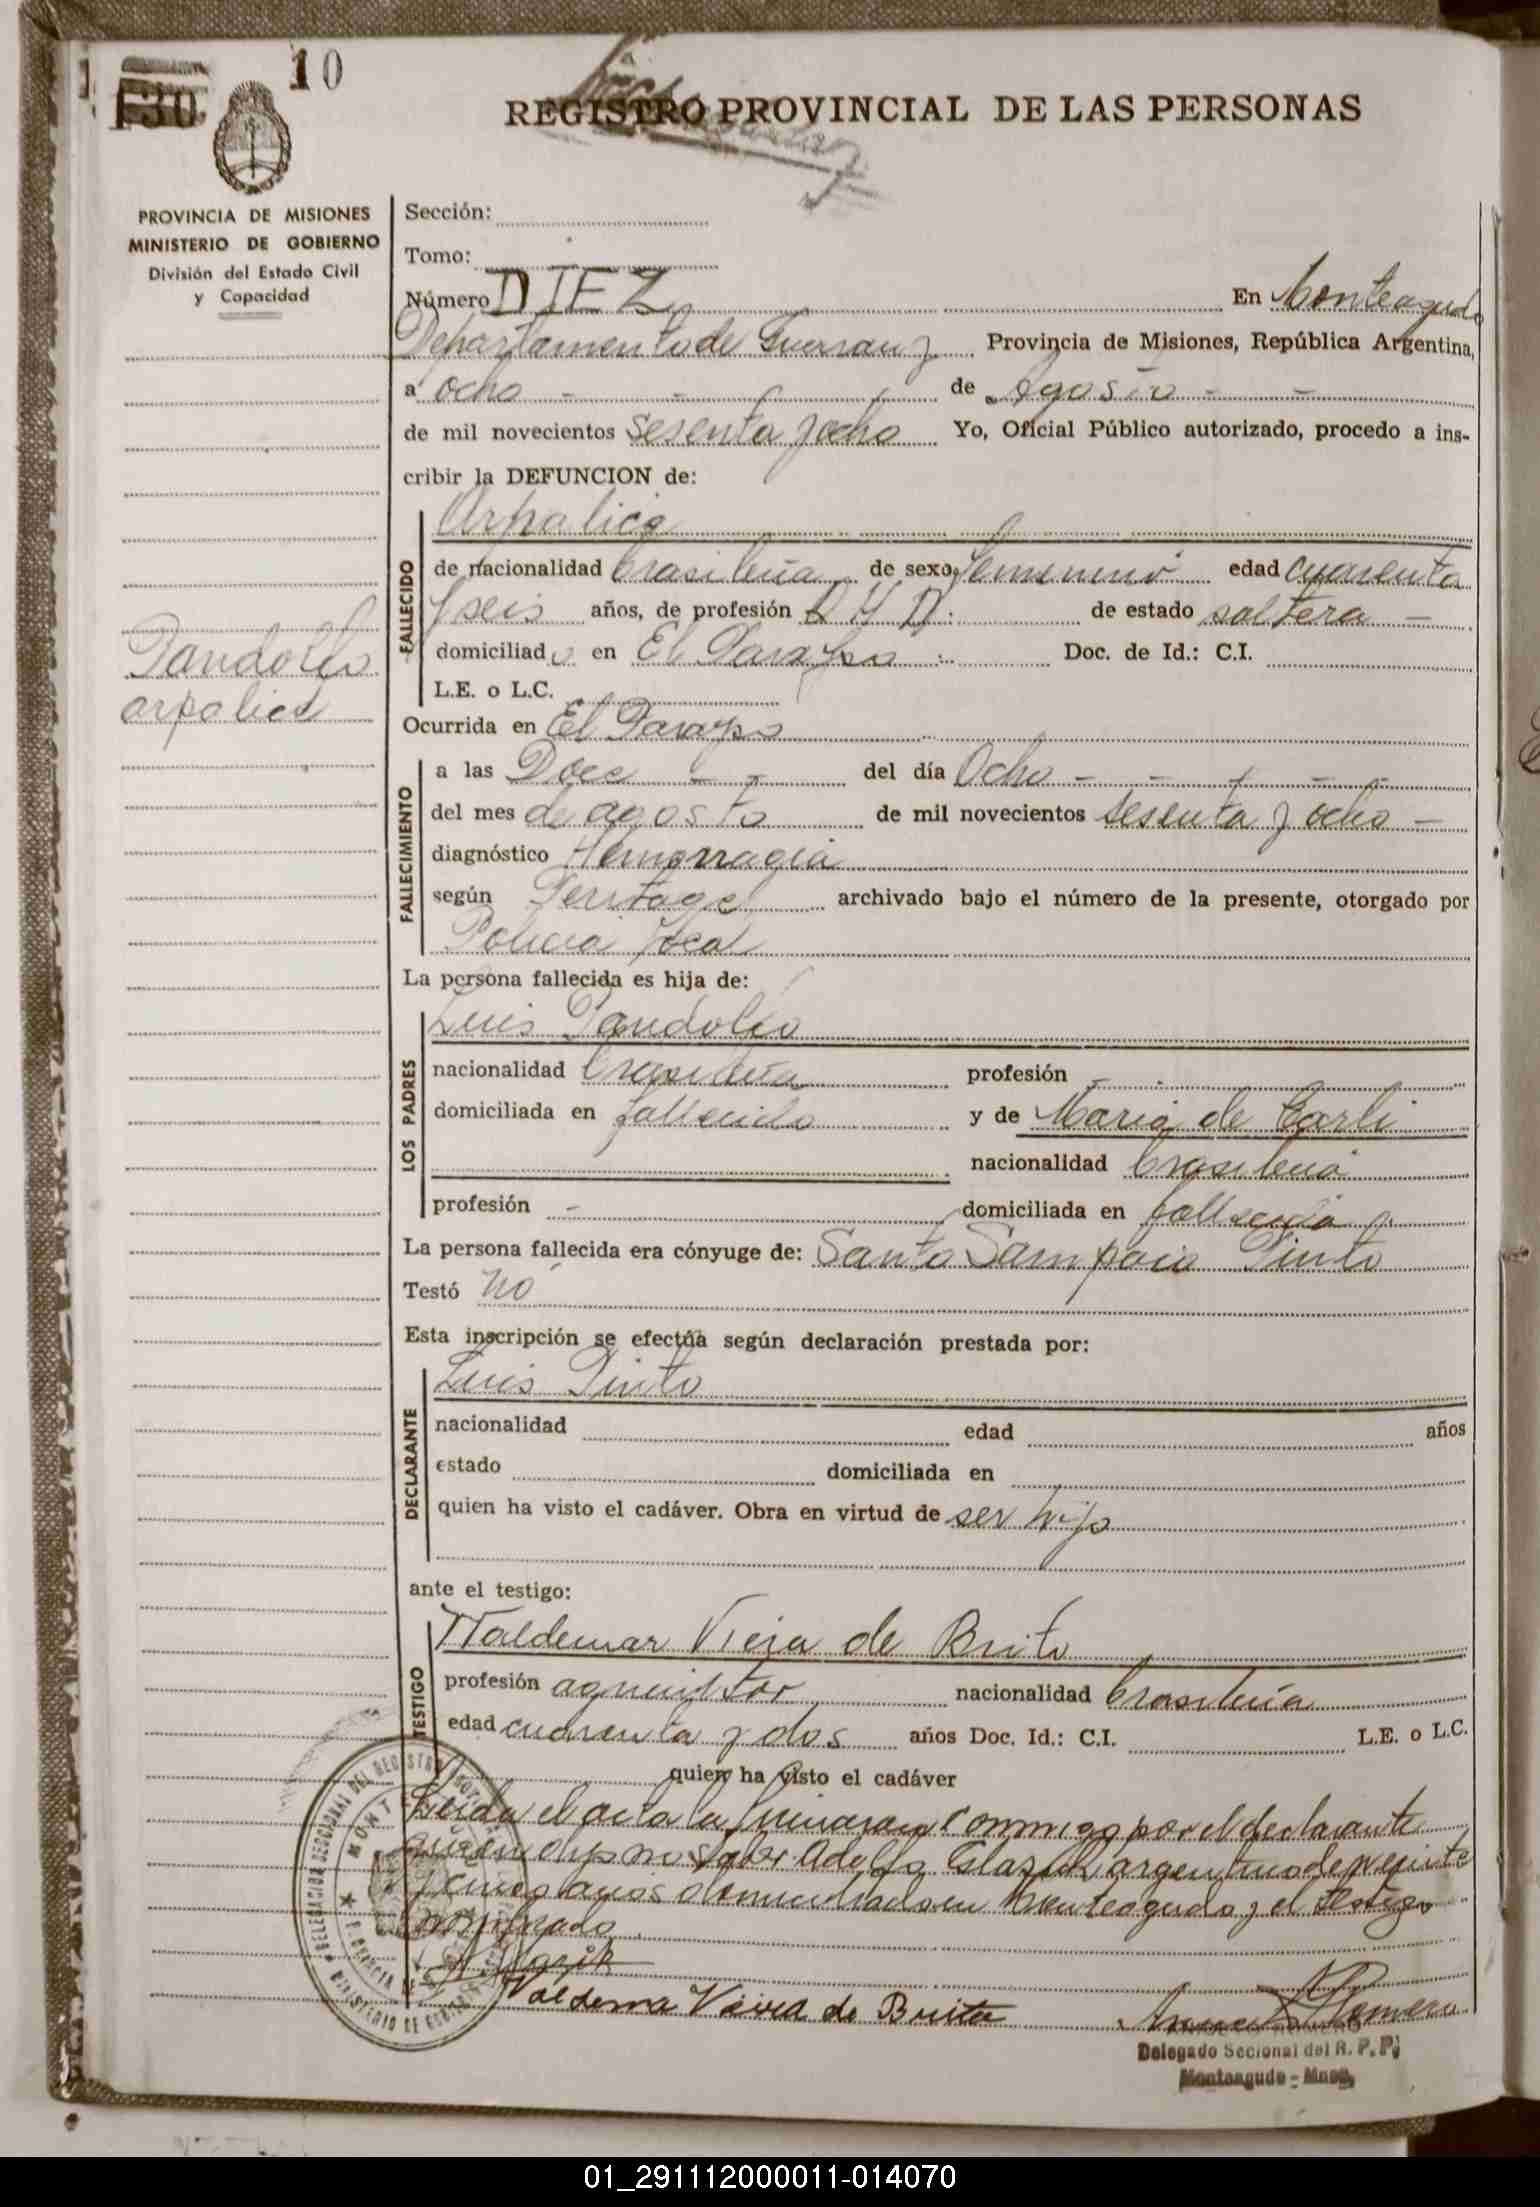 10
130
REGISTRO PROVINCIAL DE LAS PERSONAS
PROVINCIA DE MISIONES
MINISTERIO DE GOBIERNO
División del Estado Civil
y Capacidad
Sección:
Tomo:
Número DIEZ En Monteagudo
Departamento de Guarany Provincia de Misiones, República Argentina,
a ocho - - de Agosto - -
de mil novecientos sesenta y ocho Yo, Oficial Público autorizado, procedo a ins-
cribir la DEFUNCION de:
FALLECIDO
Arpalice
de nacionalidad brasileña de sexo femenino edad cuarenta
y seis años, de profesión Q.H.D. de estado soltera -
domiciliado en El Parayso Doc. de Id.: C.I.
L.E. o L.C.
Pandolfo
arpalice
Ocurrida en El Parayso
FALLECIMIENTO
a las Doce - - del día Ocho - - - - -
del mes de agosto de mil novecientos sesenta y ocho -
diagnóstico Hemorragia
según Peritage archivado bajo el número de la presente, otorgado por
Policia local
La persona fallecida es hija de:
LOS PADRES
Luis Pandolfo
nacionalidad brasileña profesión -
domiciliada en fallecido y de Maria de Carli
nacionalidad brasileña
profesión - domiciliada en fallecida
La persona fallecida era cónyuge de: Santo Sampaio Pinto
Testó no
Esta inscripción se efectúa según declaración prestada por:
DECLARANTE
Luis Pinto
nacionalidad edad años
estado domiciliada en
quien ha visto el cadáver. Obra en virtud de ser hijo
ante el testigo:
TESTIGO
Waldemar Vieja de Brito
profesión agricultor nacionalidad brasileña
edad cuarenta y dos años Doc. Id.: C.I. L.E. o L.C.
quien ha visto el cadáver
Leida el acta la firmaron conmigo por el declarante
quien dijo no saber Adolfo argentino de veinte
y cinco años domiciliado en Monteagudo y el testigo
nombrado.
Valdema Vieira de Brita
Romero
Delegado Seccional del R. P. P.
Monteagudo - Mnes.
01_291112000011-014070